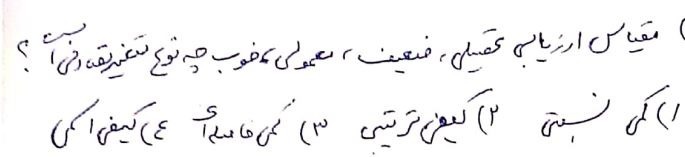 ) مقیاس ارزیابی تحصیلی، ضعیف، معمولی، خوب چه نوع متغیر تصادفی است؟
۱) کمی نسبتی ۲) کیفی ترتیبی ۳) کمی فاصله‌ای ۴) کیفی اسمی